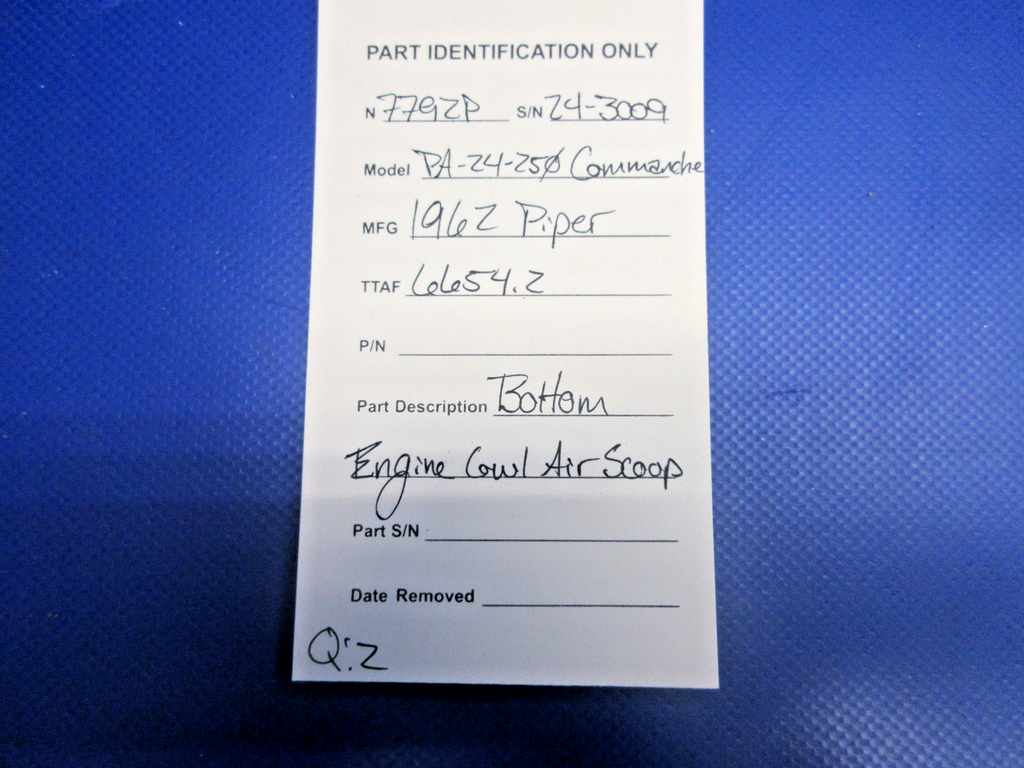 PART IDENTIFICATION ONLY
N 7792P S/N 24-3009
Model PA-24-250 Commanche
MFG 1962 Piper
TTAF 6654.2
P/N
Part Description Bottom
Engine Cowl Air Scoop
Part S/N
Date Removed
Q:2